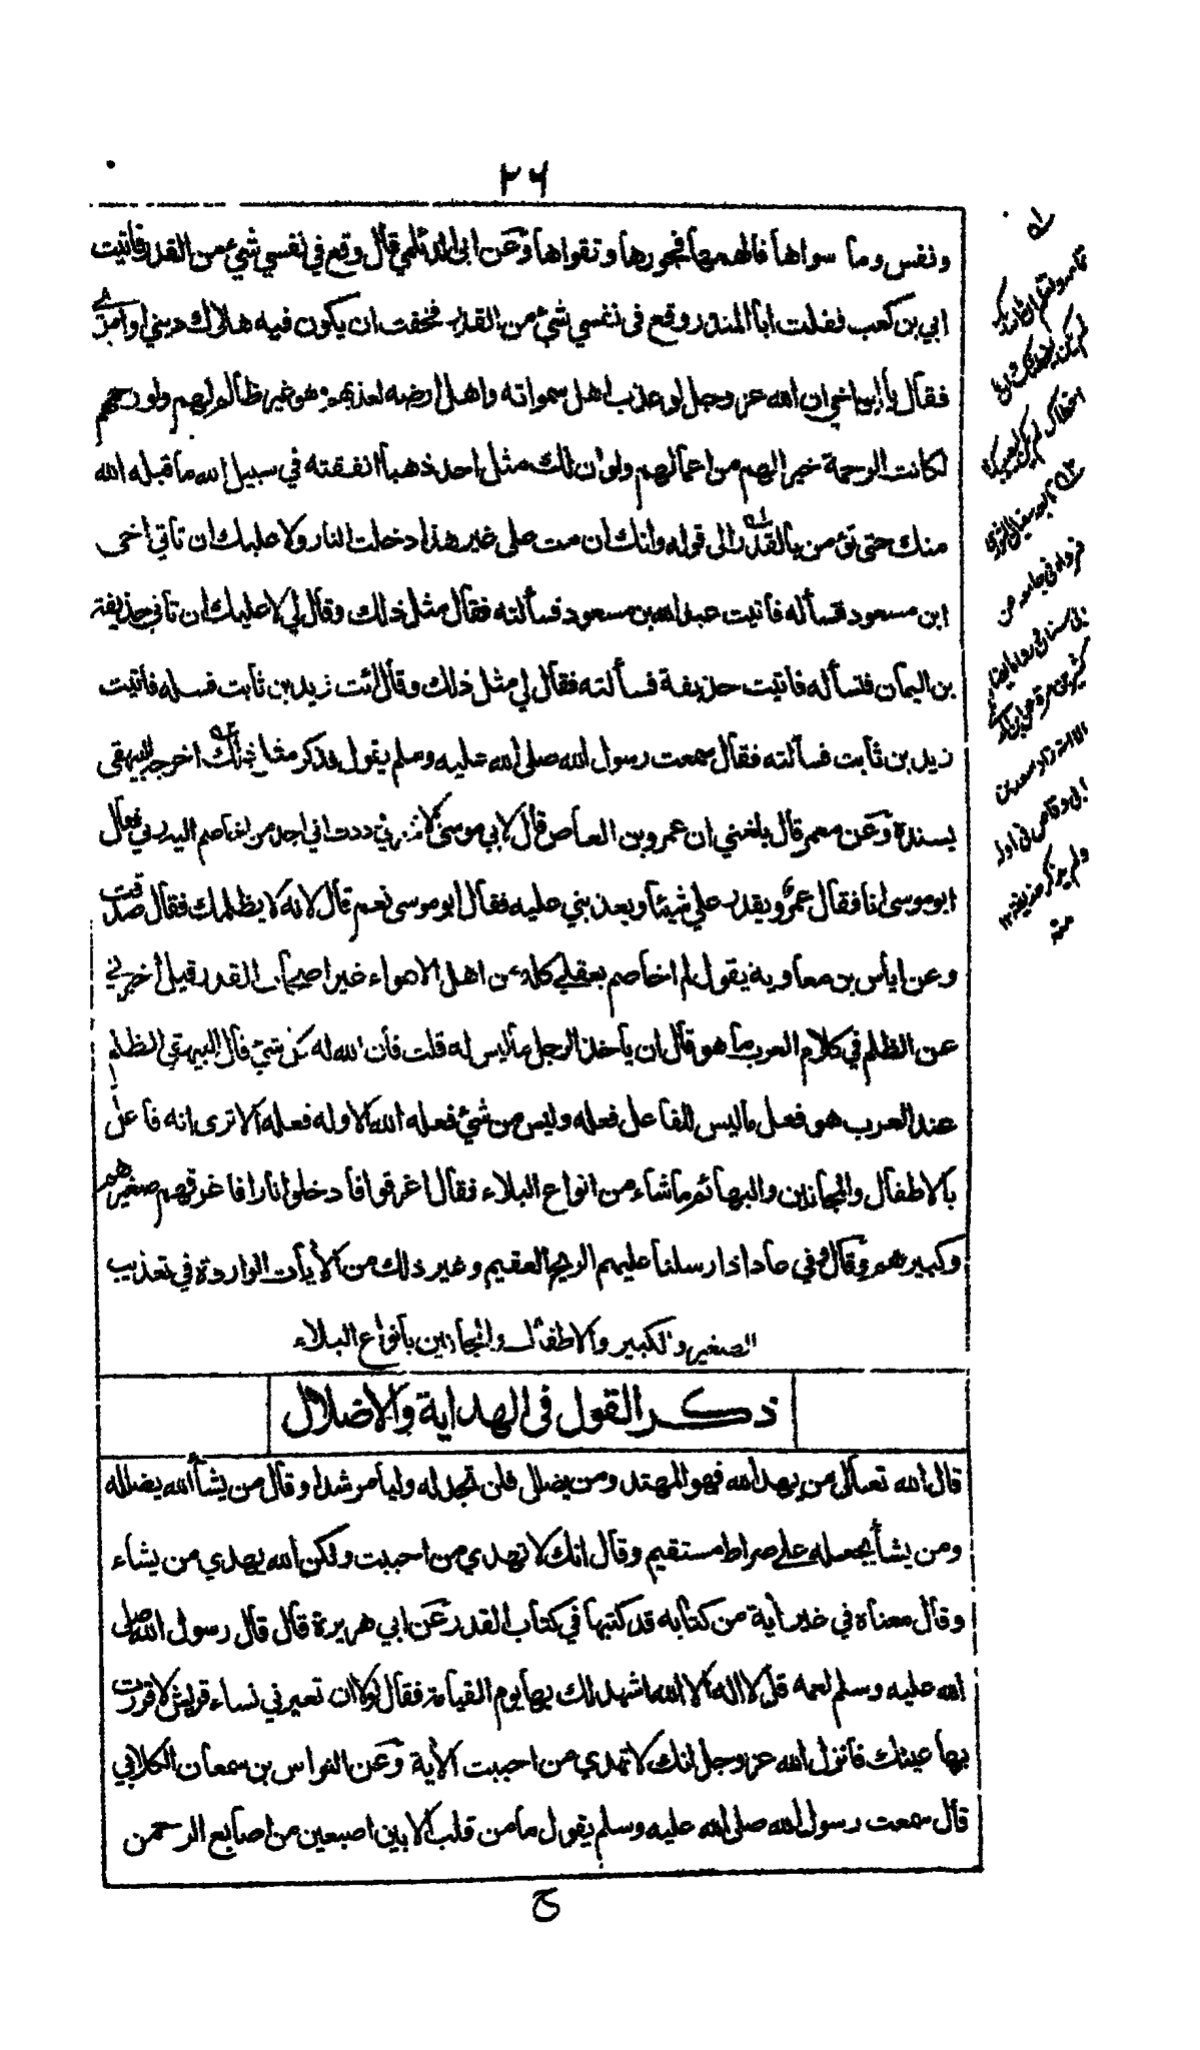 ٢٦
ونفس وما سواها فالهمها فجورها وتقواها وعن ابي الديلمي قال وقع في نفسي شيء من القدر فاتيت
ابي بن كعب فقلت ابا المنذر وقع في نفسي شيء من القدر فخفت ان يكون فيه هلاك ديني او امري
فقال يا ابن اخي ان الله عز وجل لو عذب اهل سمواته واهل ارضه لعذبهم وهو غير ظالم لهم ولو رحمهم
لكانت الرحمة خيرا لهم من اعمالهم ولو ان لك مثل احد ذهبا انفقته في سبيل الله ما قبله الله
منك حتى تؤمن بالقدر الى قوله وانك ان مت على غير هذا دخلت النار ولا عليك ان تاتي اخي
ابن مسعود فتسأله فاتيت عبد الله بن مسعود فسألته فقال مثل ذلك وقال لي لا عليك ان تاتي حذيفة
بن اليمان فتسأله فاتيت حذيفة فسألته فقال لي مثل ذلك وقال ائت زيد بن ثابت فسله فاتيت
زيد بن ثابت فسألته فقال سمعت رسول الله صلى الله عليه وسلم يقول فذكر مثل ذلك اخرجه البيهقي
بسنده وعن معمر قال بلغني ان عمرو بن العاص قال لابي موسى وددت اني اجد من اخاصم اليه ربي فقال
ابو موسى انا فقال عمرو يقدر علي شيئا ويعذبني عليه فقال ابو موسى نعم قال لانه لا يظلمك فقال صدقت
وعن اياس بن معاوية يقول لم اخاصم بعقلي كله من اهل الاهواء غير اصحاب القدر قيل اخبرني
عن الظلم في كلام العرب ما هو قال ان ياخذ الرجل ما ليس له قلت فان الله له كل شيء قال البيهقي الظلم
عند العرب هو فعل ما ليس للفاعل فعله وليس من شيء فعله الله الا وله فعله الا ترى انه فاعل
بالاطفال والمجانين والبهائم ما شاء من انواع البلاء فقال اغرقوا فادخلوا نارا فاغرقهم صغيرهم
وكبيرهم وقال وفي عاد اذ ارسلنا عليهم الريح العقيم وغير ذلك من الآيات الواردة في تعذيب
الصغير والكبير والاطفال والمجانين بانواع البلاء
ذكر القول في الهداية والاضلال
قال الله تعالى من يهد الله فهو المهتد ومن يضلل فلن تجد له وليا مرشدا وقال من يشأ الله يضلله
ومن يشأ يجعله على صراط مستقيم وقال انك لا تهدي من احببت ولكن الله يهدي من يشاء
وقال معناه في غير آية من كتابه قد كتبها في كتاب القدر عن ابي هريرة قال قال رسول الله صلى
الله عليه وسلم لعمه قل لا اله الا الله اشهد لك بها يوم القيامة فقال لولا ان تعيرني نساء قريش لاقررت
بها عينك فانزل الله عز وجل انك لا تهدي من احببت الآية وعن النواس بن سمعان الكلابي
قال سمعت رسول الله صلى الله عليه وسلم يقول ما من قلب الا بين اصبعين من اصابع الرحمن
ح